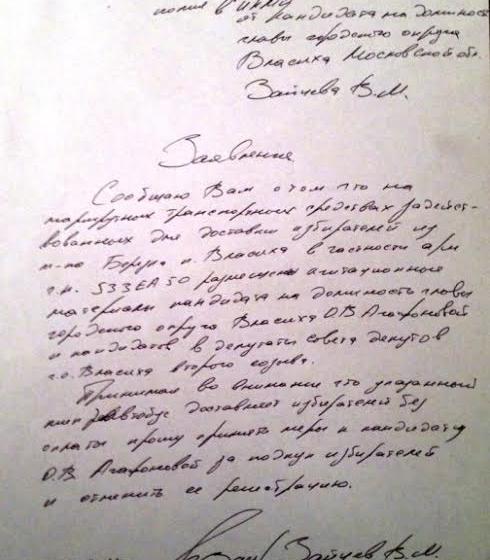 копия в
от кандидата на должность
главы городского округа
Власиха Московской обл.
Зайцева В.М.
Заявление
Сообщаю Вам о том что на
маршрутных транспортных средствах задейст-
вованных для доставки избирателей из
п. Власиха в частности
г.н. 533ЕА50 размещены агитационные
материалы кандидата на должность главы
городского округа Власиха О.В Агафоновой
и кандидатов в депутаты совета депутов
г.о. Власиха второго созыва.
Принимая во внимание что указанный
доставляет избирателей без
оплаты прошу принять меры к кандидату
О.В. Агафоновой за подкуп избирателей
и отменить ее регистрацию.
Зайцев В.М.